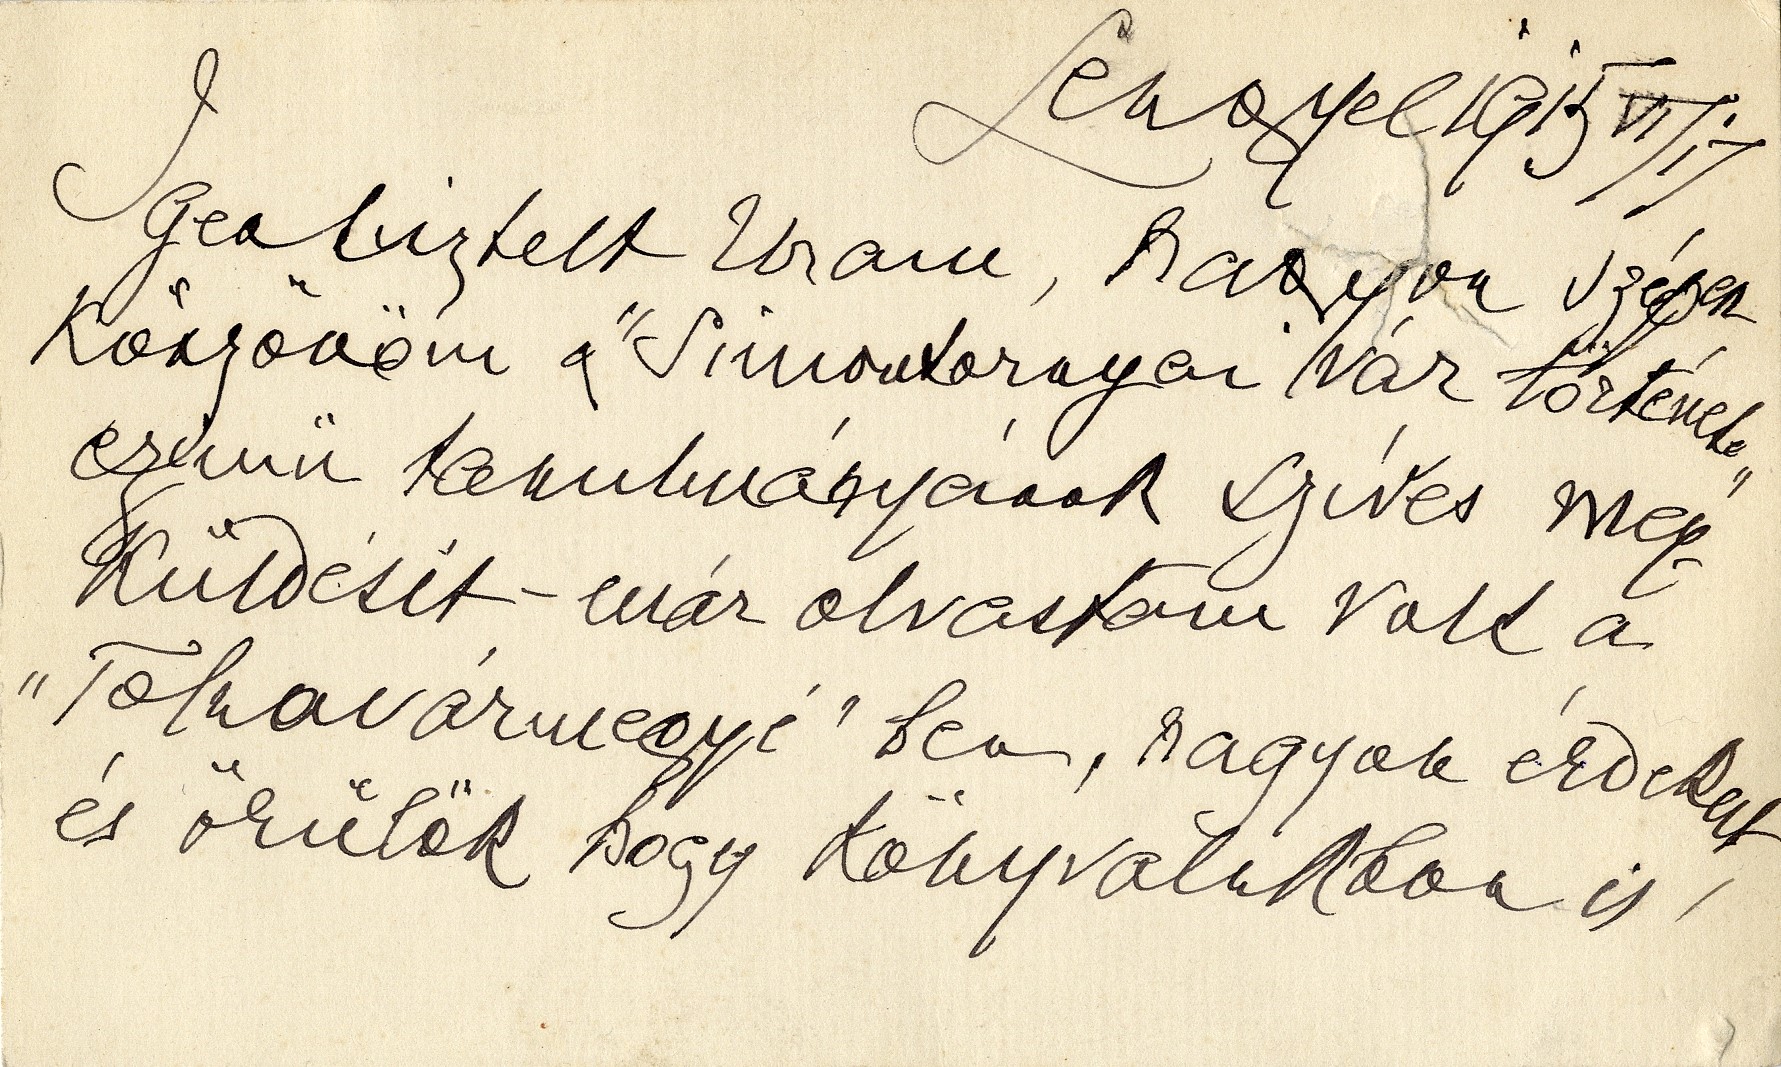 Lengyel 1915 VI/17
Igen tisztelt Uram, nagyon szépen
köszönöm a "Simontornyai vár története"
czimü tanulmányának szíves meg-
küldésit - már olvastam volt a
"Tolnavármegyé" ben, nagyon érdekelt
és örülök hogy könyvalakban is